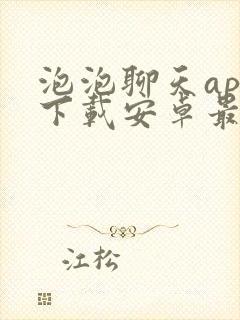 泡泡聊天ap
下载安卓最
江松